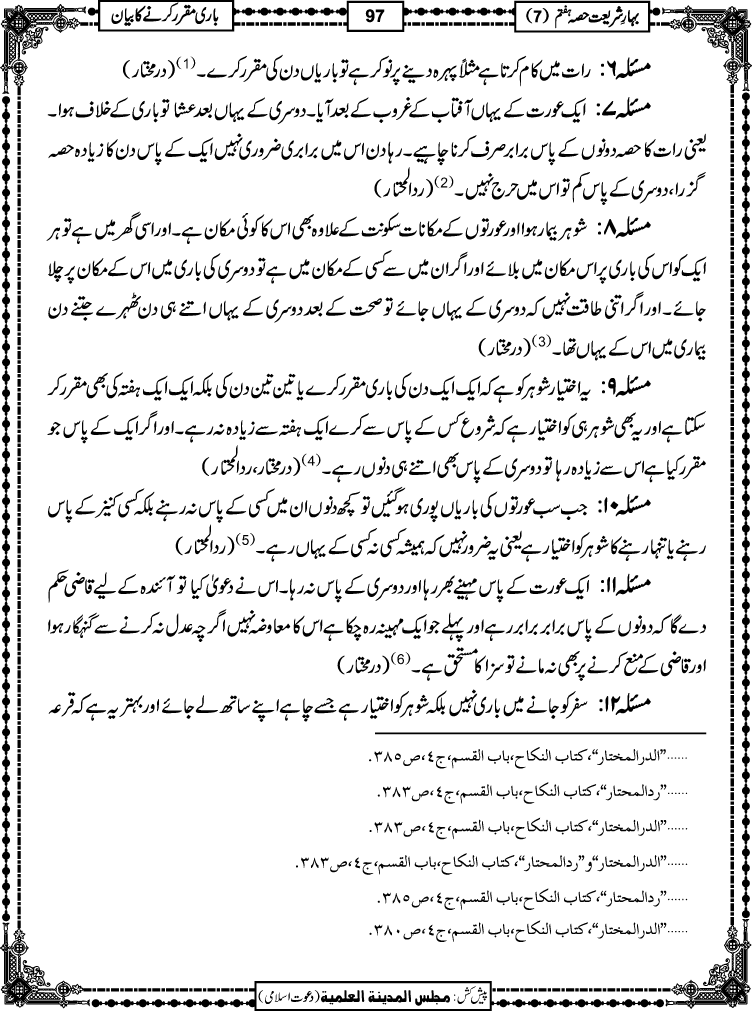 بہارِ شریعت حصہ ہفتم (7)
97
باری مقرر کرنے کا بیان
مسئلہ ۶: رات میں کام کرتا ہے مثلاً پہرہ دینے پر نوکر ہے تو باریاں دن کی مقرر کرے۔(1) (درمختار)
مسئلہ ۷: ایک عورت کے یہاں آفتاب کے غروب کے بعد آیا۔ دوسری کے یہاں بعد عشا تو باری کے خلاف ہوا۔
یعنی رات کا حصہ دونوں کے پاس برابر صرف کرنا چاہیے۔ رہا دن اس میں برابری ضروری نہیں ایک کے پاس دن کا زیادہ حصہ
گزرا، دوسری کے پاس کم تو اس میں حرج نہیں۔(2) (ردالمحتار)
مسئلہ ۸: شوہر بیمار ہوا اور عورتوں کے مکانات سکونت کے علاوہ بھی اس کا کوئی مکان ہے۔ اور اسی گھر میں ہے تو ہر
ایک کو اس کی باری پر اس مکان میں بلائے اور اگر ان میں سے کسی کے مکان میں ہے تو دوسری کی باری میں اس کے مکان پر چلا
جائے۔ اور اگر اتنی طاقت نہیں کہ دوسری کے یہاں جائے تو صحت کے بعد دوسری کے یہاں اتنے ہی دن ٹھہرے جتنے دن
بیماری میں اس کے یہاں تھا۔(3) (درمختار)
مسئلہ ۹: یہ اختیار شوہر کو ہے کہ ایک ایک دن کی باری مقرر کرے یا تین تین دن کی بلکہ ایک ایک ہفتہ کی بھی مقرر کر
سکتا ہے اور یہ بھی شوہر ہی کو اختیار ہے کہ شروع کس کے پاس سے کرے ایک ہفتہ سے زیادہ نہ رہے۔ اور اگر ایک کے پاس جو
مقرر کیا ہے اس سے زیادہ رہا تو دوسری کے پاس بھی اتنے ہی دنوں رہے۔(4) (درمختار، ردالمحتار)
مسئلہ ۱۰: جب سب عورتوں کی باریاں پوری ہوگئیں تو کچھ دنوں ان میں کسی کے پاس نہ رہنے بلکہ کسی کنیز کے پاس
رہنے یا تنہا رہنے کا شوہر کو اختیار ہے یعنی یہ ضرور نہیں کہ ہمیشہ کسی نہ کسی کے یہاں رہے۔(5) (ردالمحتار)
مسئلہ ۱۱: ایک عورت کے پاس مہینے بھر رہا اور دوسری کے پاس نہ رہا۔ اس نے دعویٰ کیا تو آئندہ کے لیے قاضی حکم
دے گا کہ دونوں کے پاس برابر برابر رہے اور پہلے جو ایک مہینہ رہ چکا ہے اس کا معاوضہ نہیں اگرچہ عدل نہ کرنے سے گنہگار ہوا
اور قاضی کے منع کرنے پر بھی نہ مانے تو سزا کا مستحق ہے۔(6) (درمختار)
مسئلہ ۱۲: سفر کو جانے میں باری نہیں بلکہ شوہر کو اختیار ہے جسے چاہے اپنے ساتھ لے جائے اور بہتر یہ ہے کہ قرعہ
......”الدرالمختار“،کتاب النکاح،باب القسم،ج٤،ص٣٨٥.
......”ردالمحتار“،کتاب النکاح،باب القسم،ج٤،ص٣٨٣.
......”الدرالمختار“،کتاب النکاح،باب القسم،ج٤،ص٣٨٣.
......”الدرالمختار“و”ردالمحتار“،کتاب النکاح،باب القسم،ج٤،ص٣٨٣.
......”ردالمحتار“،کتاب النکاح،باب القسم،ج٤،ص٣٨٥.
......”الدرالمختار“،کتاب النکاح،باب القسم،ج٤،ص٣٨٠.
پیش کش: مجلس المدینۃ العلمیۃ (دعوت اسلامی)